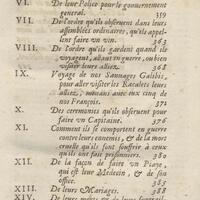 VI. De leur Police pour le gouvernement
general. 359
VII. De l'ordre qu'ils observent dans leurs
assemblées ordinaires, qu'ils appel-
lent faire un vin. 363
VIII. De l'ordre qu'ils gardent quand ils
voyagent, allant en guerre, ou bien
visiter leurs alliez. 368
IX. Voyage de nos Sauvages Galibis,
pour aller visiter les Racalets leurs
alliez, menans avec eux cinq de
nos François. 371
X. Des ceremonies qu'ils observent pour
faire un Capitaine. 376
XI. Comment ils se comportent en guerre
contre leurs ennemis, & de la mort
cruelle qu'ils font souffrir à ceux
qu'ils ont fait prisonniers. 380
XII. De la façon de faire un Piaye,
qui est leur Medecin, & de son
office. 385
XIII. De leurs Mariages. 388
XIV.